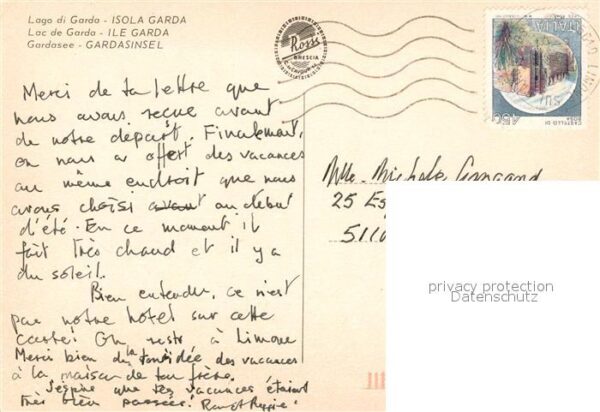 Lago di Garda - ISOLA GARDA
Lac de Garda - ILE GARDA
Gardasee - GARDASINSEL
Ross
BRESCIA
ITALIA
450
CASTELLO DI
Merci de ta lettre que
nous avons reçue avant
de notre départ. Finalement,
on nous a offert des vacances
au même endroit que nous
avons choisi avant au début
d'été. En ce moment il
fait très chaud et il y a
du soleil.
Bien entendu, ce n'est
pas notre hôtel sur cette
carte! On reste à Limone
Merci bien de la des vacances
à la maison de ton frère.
J'espère que tes vacances étaient
très bien passées!
Mlle. Michele
25
511
privacy protection
Datenschutz